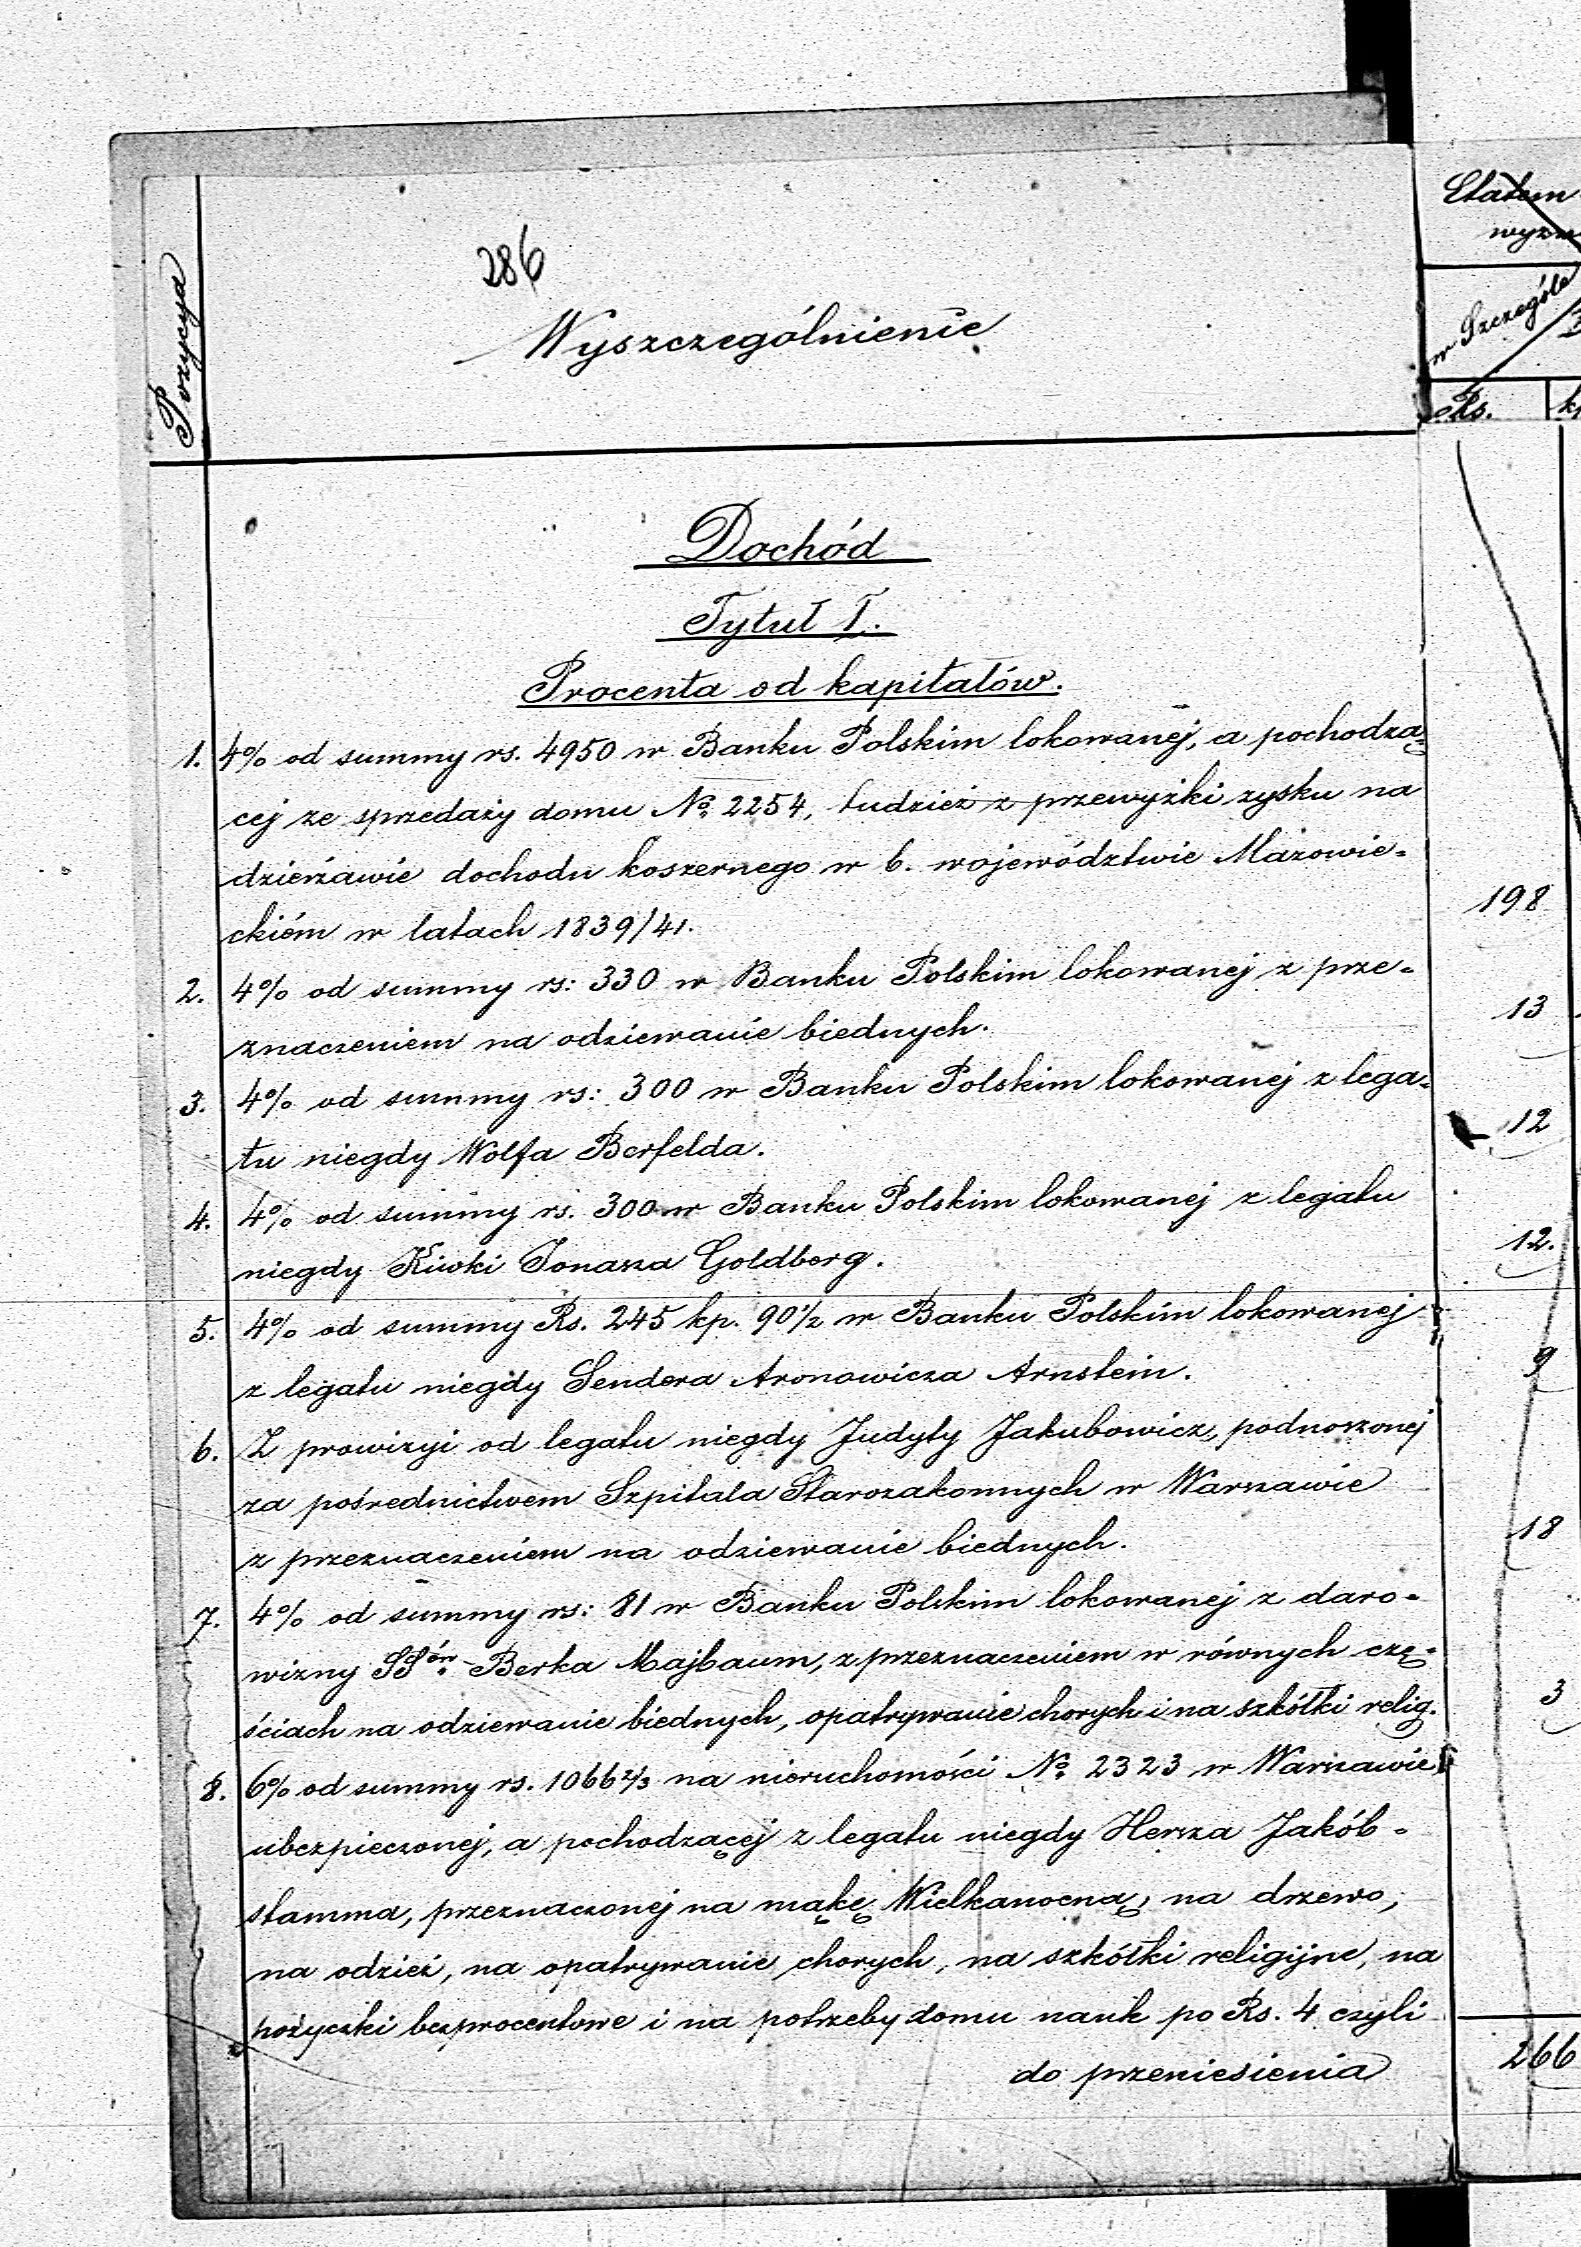 286
Pozycya
Wyszczególnienie
Etatem
wyzn
w Szczególe
Rs.
Dochód
Tytuł I.
Procenta od kapitałów.
1. 4% od summy rs. 4950 w Banku Polskim lokowanej, a pochodzą-
cej ze sprzedaży domu No. 2254, tudzież z przewyżki zysku na
dzierżawie dochodu koszernego w b. województwie Mazowie-
ckiém w latach 1839/41. 198
2. 4% od summy rs: 330 w Banku Polskim lokowanej z prze-
znaczeniem na odziewanie biednych. 13
3. 4% od summy rs: 300 w Banku Polskim lokowanej z lega-
tu niegdy Wolfa Berfelda. 12
4. 4% od summy rs. 300 w Banku Polskim lokowanej z legatu
niegdy Kiwki Jonasza Goldberg. 12.
5. 4% od summy Rs. 245 kp. 90½ w Banku Polskim lokowanej
z legatu niegdy Sendera Aronowicza Arnstein. 9
6. Z prowizyi od legatu niegdy Judyty Jakubowicz, podnoszonej
za pośrednictwem Szpitala Starozakonnych w Warszawie
z przeznaczeniem na odziewanie biednych. 18
7. 4% od summy rs: 81 w Banku Polskim lokowanej z daro-
wizny SSów. Berka Majbaum, z przeznaczeniem w równych czę-
ściach na odziewanie biednych, opatrywanie chorych i na szkółki relig. 3
8. 6% od summy rs. 1066⅔ na nieruchomości No. 2323 w Warszawie
ubezpieczonej, a pochodzącej z legatu niegdy Hersza Jakób-
stamma, przeznaczonej na mąkę Wielkanocną, na drzewo,
na odzież, na opatrywanie chorych, na szkółki religijne, na
pożyczki bezprocentowe i na potrzeby domu nauk po Rs. 4 czyli
do przeniesienia 266